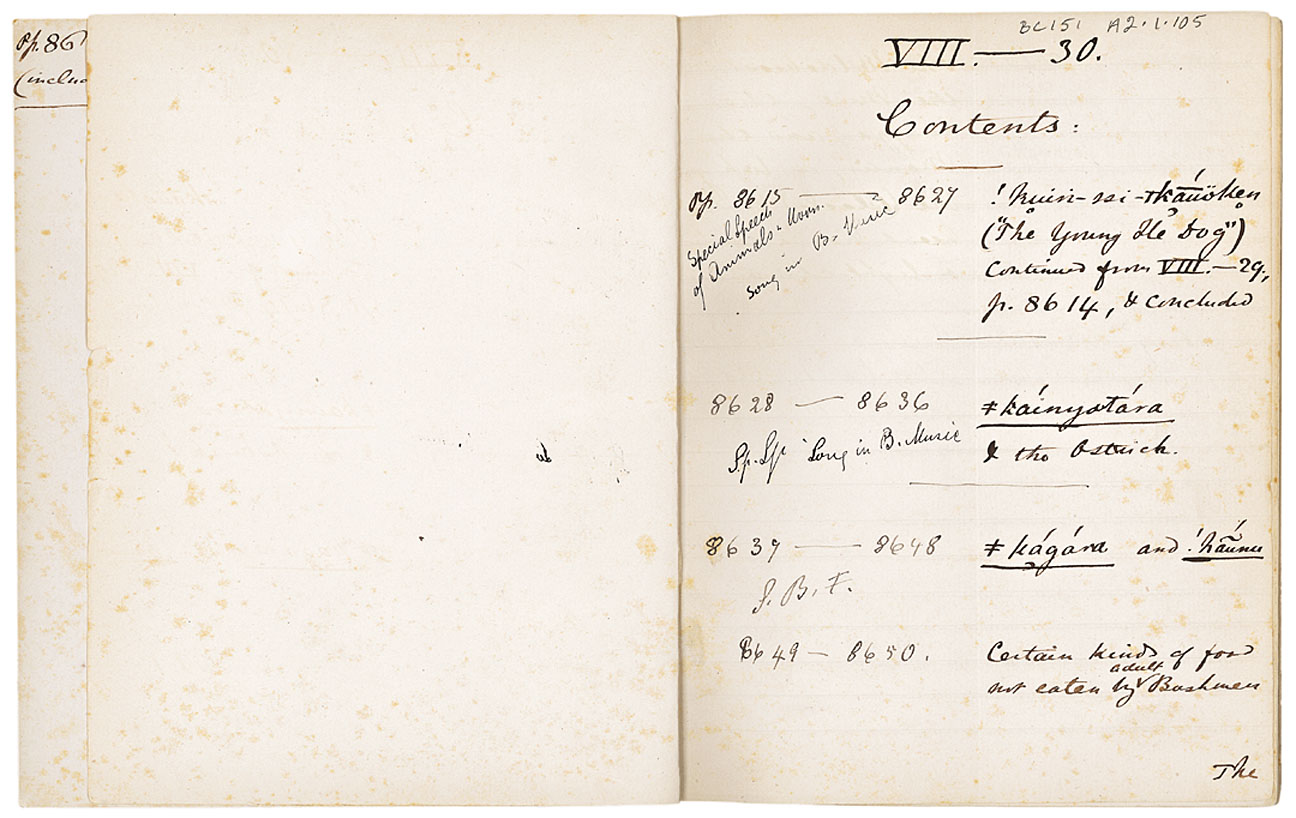 pp. 86
(inclu
BC151 A2.1.105
VIII. — 30.
Contents:
pp. 8615 — 8627
Special Speech
of Animals & Moon.
Song in B. Music
! kuin-ssi-
("The Young He Dog")
Continued from VIII.—29,
p. 8614, & concluded
8628 — 8636
Sp. Sp. Song in B. Music
& the Ostrich.
8637 — 8648
ǂkágára and
S. B. F.
8649 — 8650.
Certain kinds of food
not eaten by adult Bushmen
The